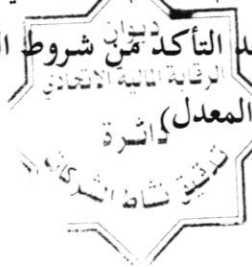 د التأكد من شروط ال
ديوان
الرقابة المالية الاتحادي
المعدل)
دائرة
تدقيق نشاط الشركات